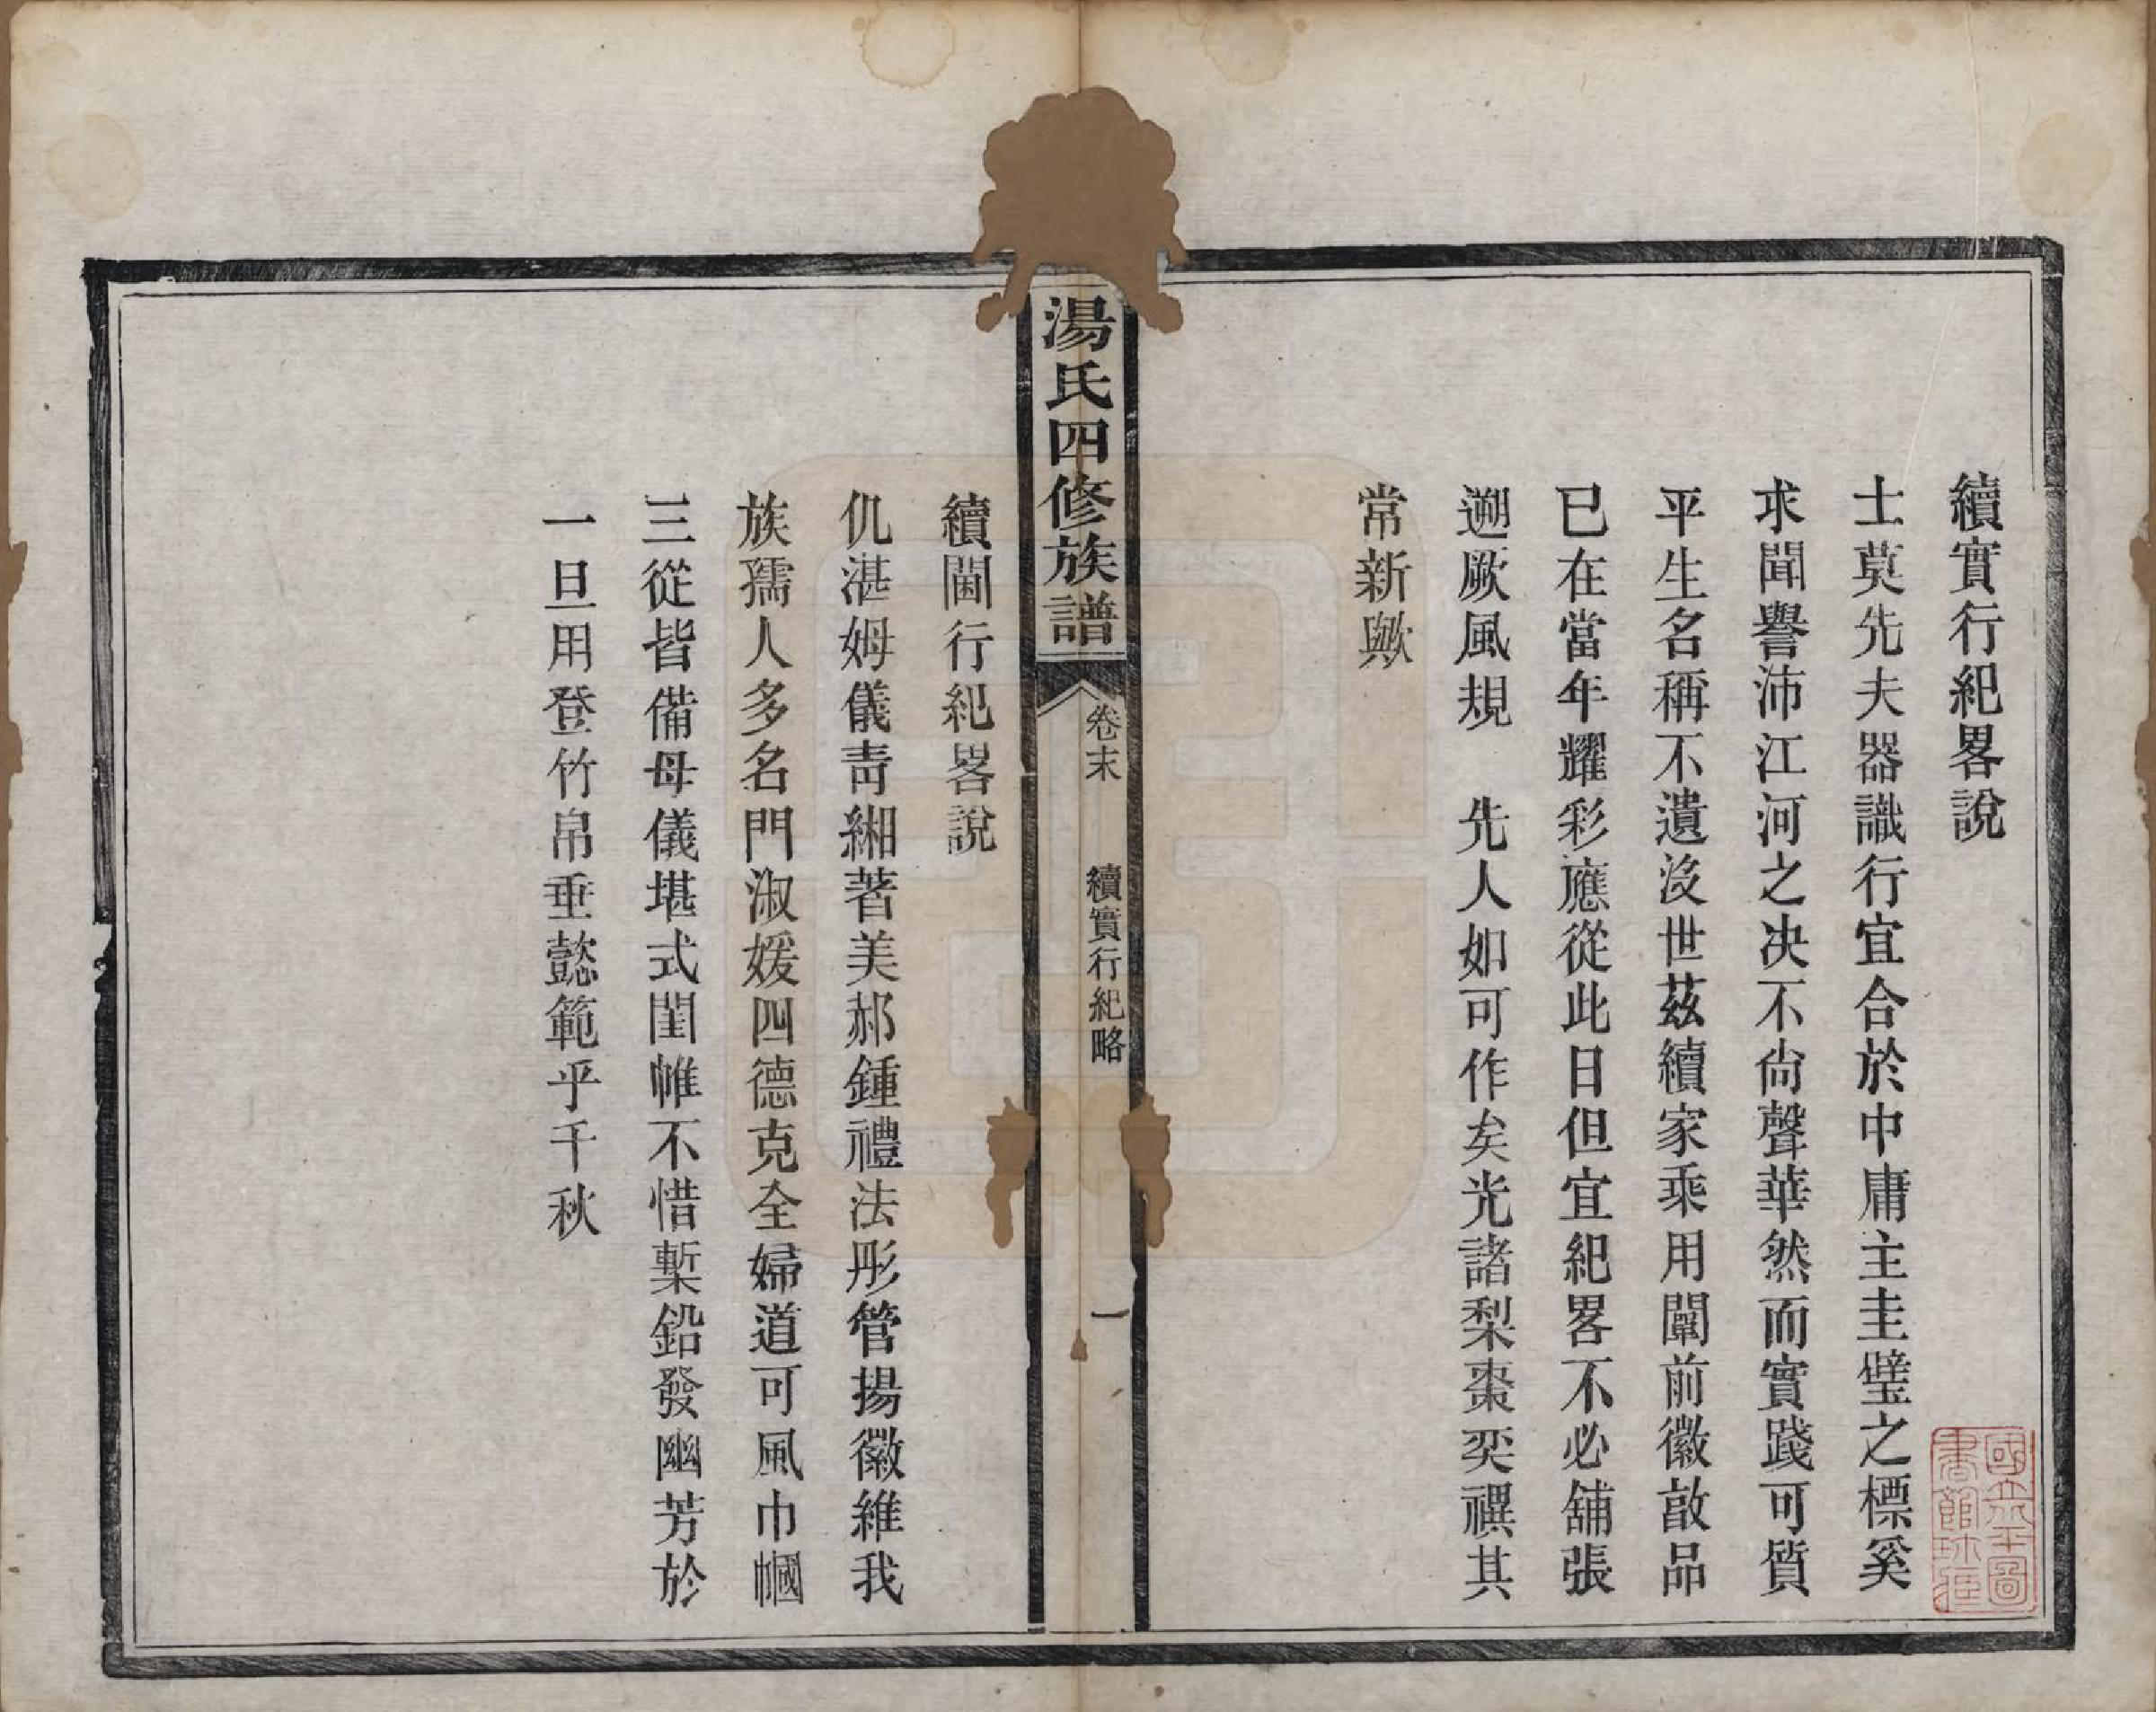 續實行紀畧說
士莫先夫器識行宜合於中庸主圭璧之標奚
求聞譽沛江河之决不尙聲華然而實踐可質
平生名稱不遺沒世茲續家乘用闡前徽敢品
已在當年耀彩應從此日但宜紀畧不必舖張
遡厥風規 先人如可作矣光諸梨棗奕禩其
常新歟
湯氏四修族譜
卷末 續實行紀略 一
續閫行紀畧說
仉湛姆儀靑緗著美郝鍾禮法彤管揚徽維我
族孺人多名門淑媛四德克全婦道可風巾幗
三從皆備母儀堪式閨帷不惜槧鉛發幽芳於
一旦用登竹帛垂懿範乎千秋
國立北平圖
書館珍藏